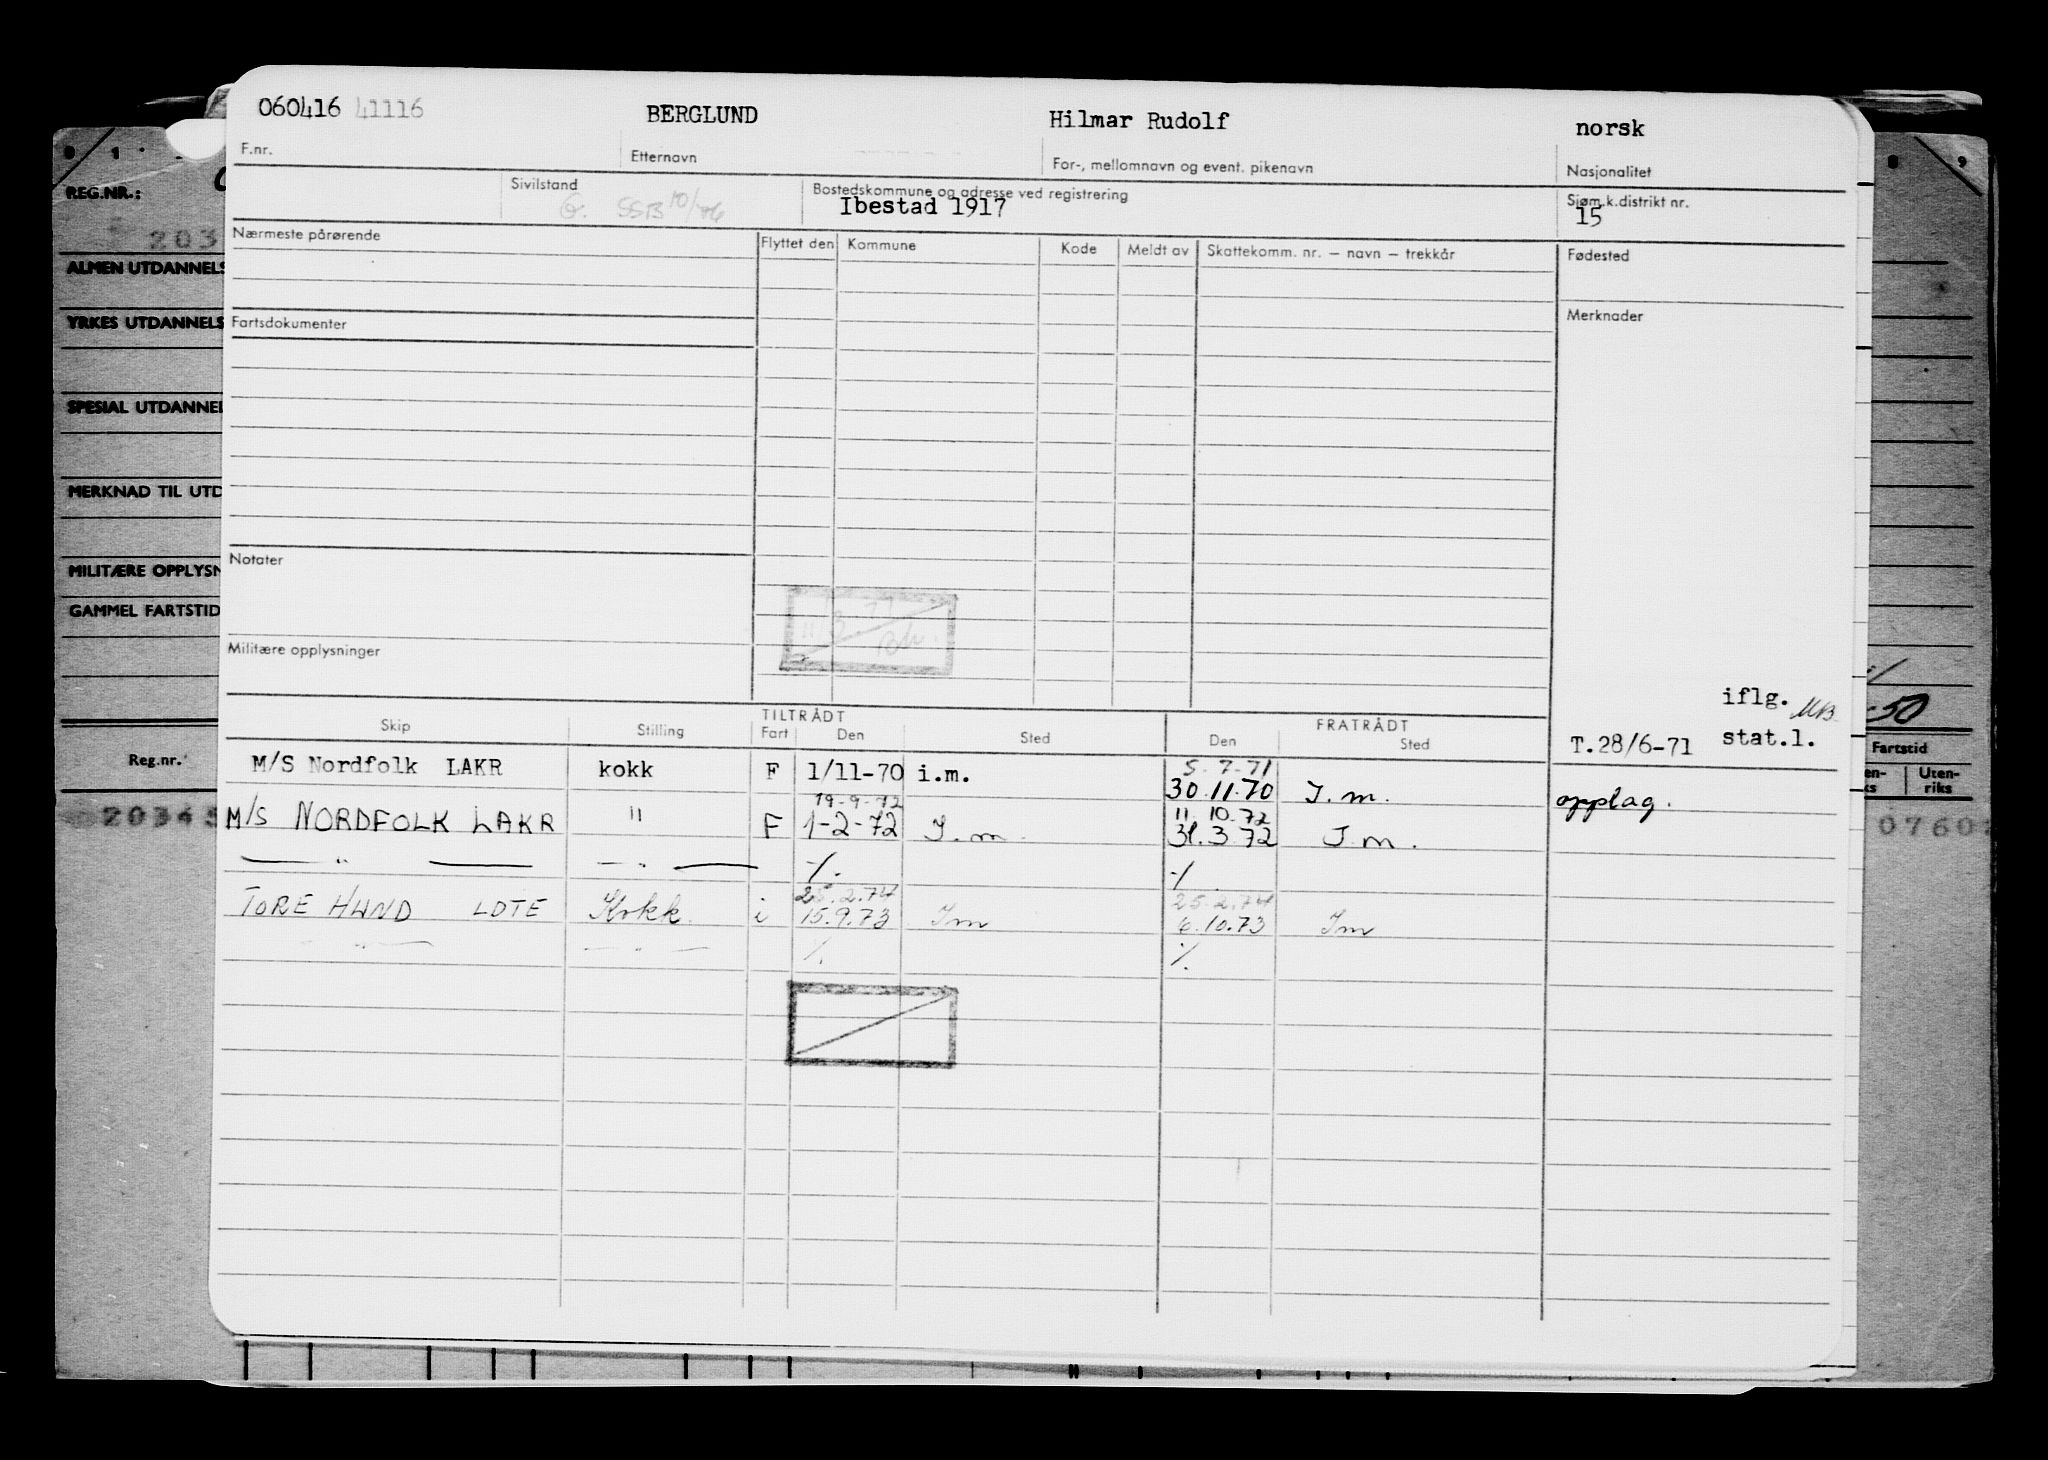 060416 41116 BERGLUND Hilmar Rudolf norsk
F.nr. Etternavn For-, mellomnavn og event. pikenavn Nasjonalitet
Sivilstand Bostedskommune og adresse ved registrering Sjøm.k.distrikt nr.
G. SSB 10/76 Ibestad 1917 15
Nærmeste pårørende Flyttet den Kommune Kode Meldt av Skattekomm. nr. — navn — trekkår Fødested
Fartsdokumenter Merknader
Notater
Militære opplysninger
iflg. MB
T.28/6-71 stat.l.
opplag.
TILTRÅDT FRATRÅDT
Skip Stilling Fart Den Sted Den Sted
5.7.71
M/S Nordfolk LAKR kokk F 1/11-70 i.m. 30.11.70 I.m.
19-9-72 11.10.72
M/S NORDFOLK LAKR " F 1-2-72 I.m. 31.3.72 I.m.
— " — — " — ./. ./.
i 25.2.74 25.2.74
TORE HUND LDTE Kokk i 15.9.73 Im 6.10.73 Im
— " — — " — ./. ./.
REG.NR.:
203
ALMEN UTDANNELS
YRKES UTDANNELS
SPESIAL UTDANNEL
MERKNAD TIL UTD
MILITÆRE OPPLYSN
GAMMEL FARTSTID
Reg.nr.
20345
8 9
50
Fartstid
Uten-
riks
0760